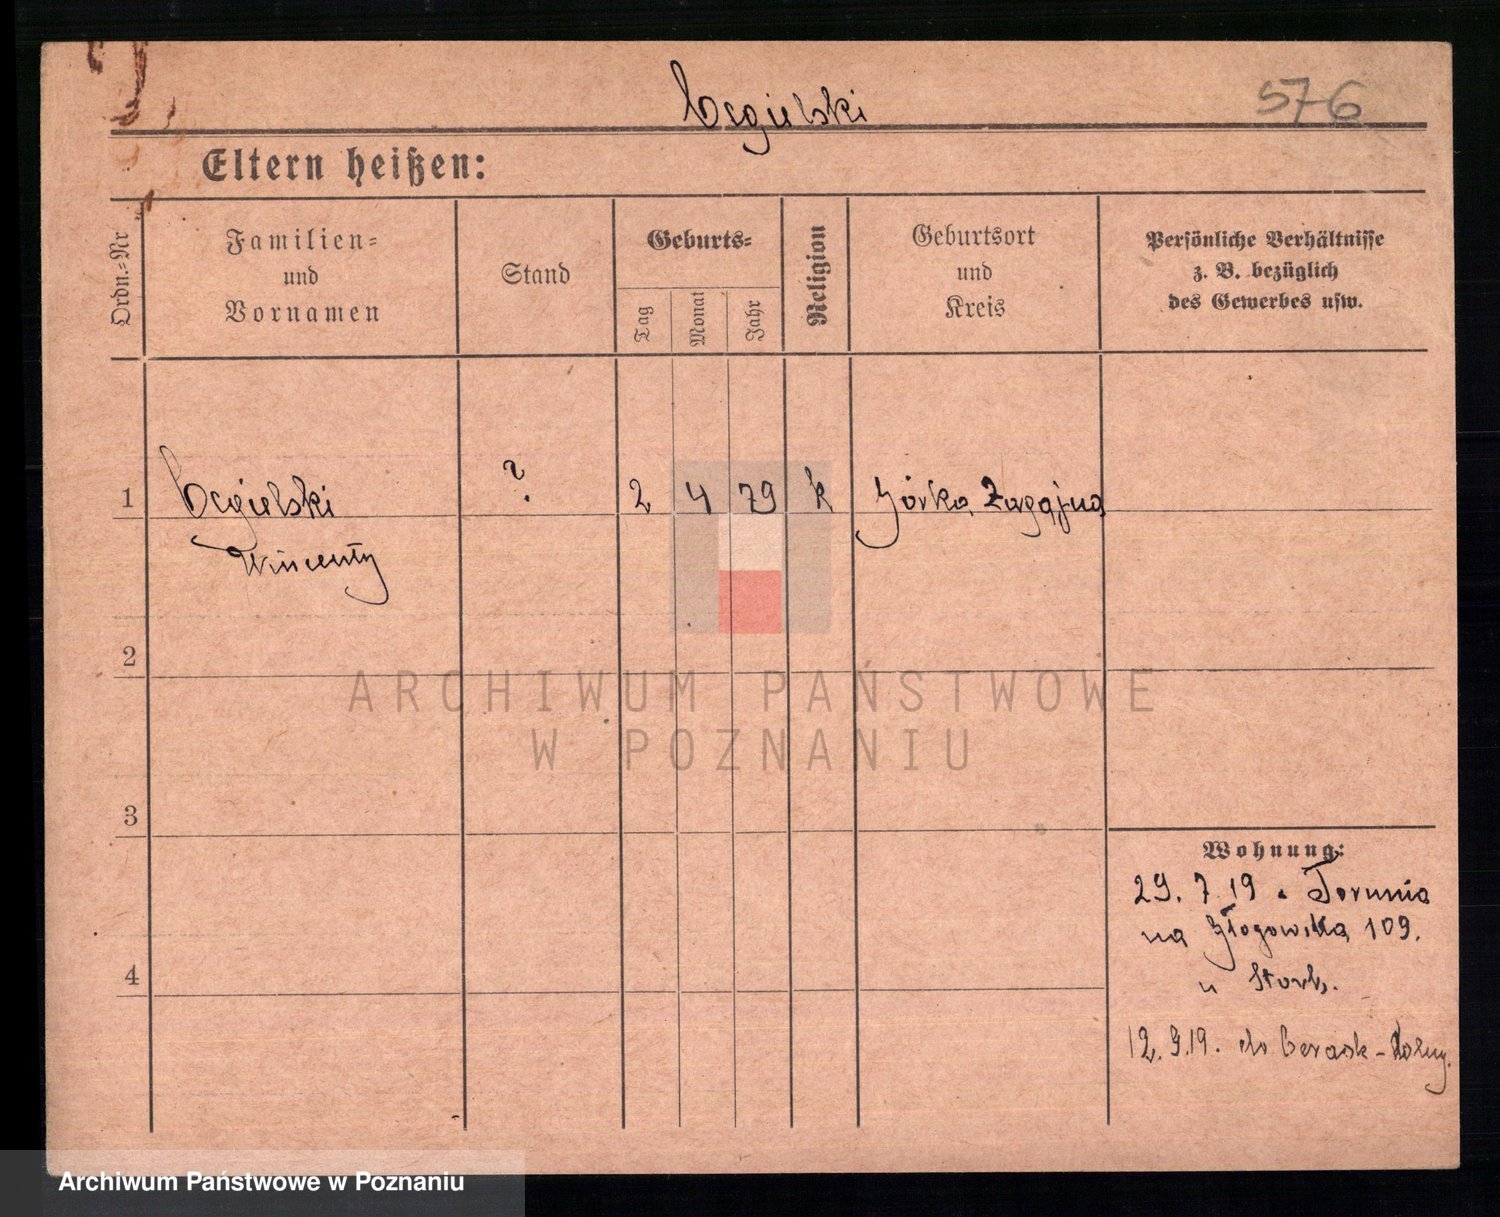 Cegielski 576
Eltern heißen:
Ordn.-Nr
Familien-
und
Vornamen
Stand
Geburts-
Tag
Monat
Jahr
Religion
Geburtsort
und
Kreis
Persönliche Verhältnisse
z. B. bezüglich
des Gewerbes usw.
1 Cegielski ? 2 4 79 k Górka Zagajna
Wincenty
2
3
4
Wohnung:
29. 7 19 z Torunia
na Głogowska 109.
u
12. 9.19. do
ARCHIWUM PAŃSTWOWE
W POZNANIU
Archiwum Państwowe w Poznaniu